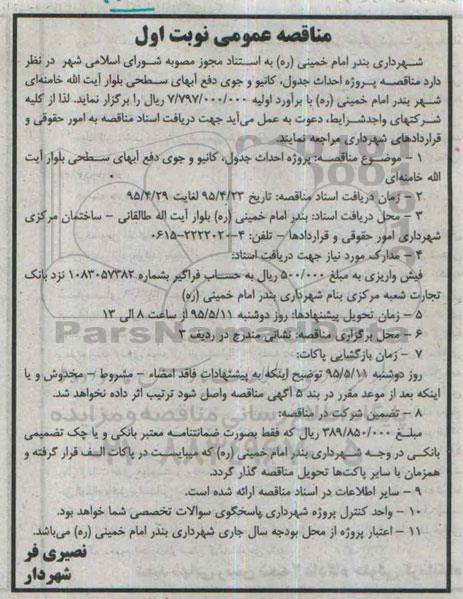 مناقصه عمومی نوبت اول
شهرداری بندر امام خمینی (ره) به استناد مجوز مصوبه شورای اسلامی شهر در نظر
دارد مناقصه پروژه احداث جدول، کانیو و جوی دفع آبهای سطحی بلوار آیت الله خامنه‌ای
شهر بندر امام خمینی (ره) با برآورد اولیه ۷/۷۹۷/۰۰۰/۰۰۰ ریال را برگزار نماید. لذا از کلیه
شرکتهای واجدشرایط، دعوت به عمل می‌آید جهت دریافت اسناد مناقصه به امور حقوقی و
قراردادهای شهرداری مراجعه نمایند.
۱ – موضوع مناقصه: پروژه احداث جدول، کانیو و جوی دفع آبهای سطحی بلوار آیت
الله خامنه‌ای
۲ – زمان دریافت اسناد مناقصه: تاریخ ۹۵/۴/۲۳ لغایت ۹۵/۴/۲۹
۳ – محل دریافت اسناد: بندر امام خمینی (ره) بلوار آیت اله طالقانی – ساختمان مرکزی
شهرداری امور حقوقی و قراردادها – تلفن: ۴-۲۲۲۲۰۲۰-۰۶۱۵
۴ – مدارک مورد نیاز جهت دریافت اسناد:
فیش واریزی به مبلغ ۵۰۰/۰۰۰ ریال به حساب فراگیر بشماره ۱۰۸۳۰۵۷۳۸۲ نزد بانک
تجارت شعبه مرکزی بنام شهرداری بندر امام خمینی (ره)
۵ – زمان تحویل پیشنهادها: روز دوشنبه ۹۵/۵/۱۱ از ساعت ۸ الی ۱۳
۶ – محل برگزاری مناقصه: نشانی مندرج در ردیف ۳
۷ – زمان بازگشایی پاکات:
روز دوشنبه ۹۵/۵/۱۱ توضیح اینکه به پیشنهادات فاقد امضاء – مشروط – مخدوش و یا
اینکه بعد از موعد مقرر در بند ۵ آگهی مناقصه واصل شود ترتیب اثر داده نخواهد شد.
۸ – تضمین شرکت در مناقصه:
مبلغ ۳۸۹/۸۵۰/۰۰۰ ریال که فقط بصورت ضمانتنامه معتبر بانکی و یا چک تضمیمی
بانکی در وجه شهرداری بندر امام خمینی (ره) که میبایست در پاکات الف قرار گرفته و
همزمان با سایر پاکت‌ها تحویل مناقصه گذار گردد.
۹ – سایر اطلاعات در اسناد مناقصه ارائه شده است.
۱۰ – واحد کنترل پروژه شهرداری پاسخگوی سوالات تخصصی شما خواهد بود.
۱۱ – اعتبار پروژه از محل بودجه سال جاری شهرداری بندر امام خمینی (ره) می‌باشد.
نصیری فر
شهردار
ParsNamadData